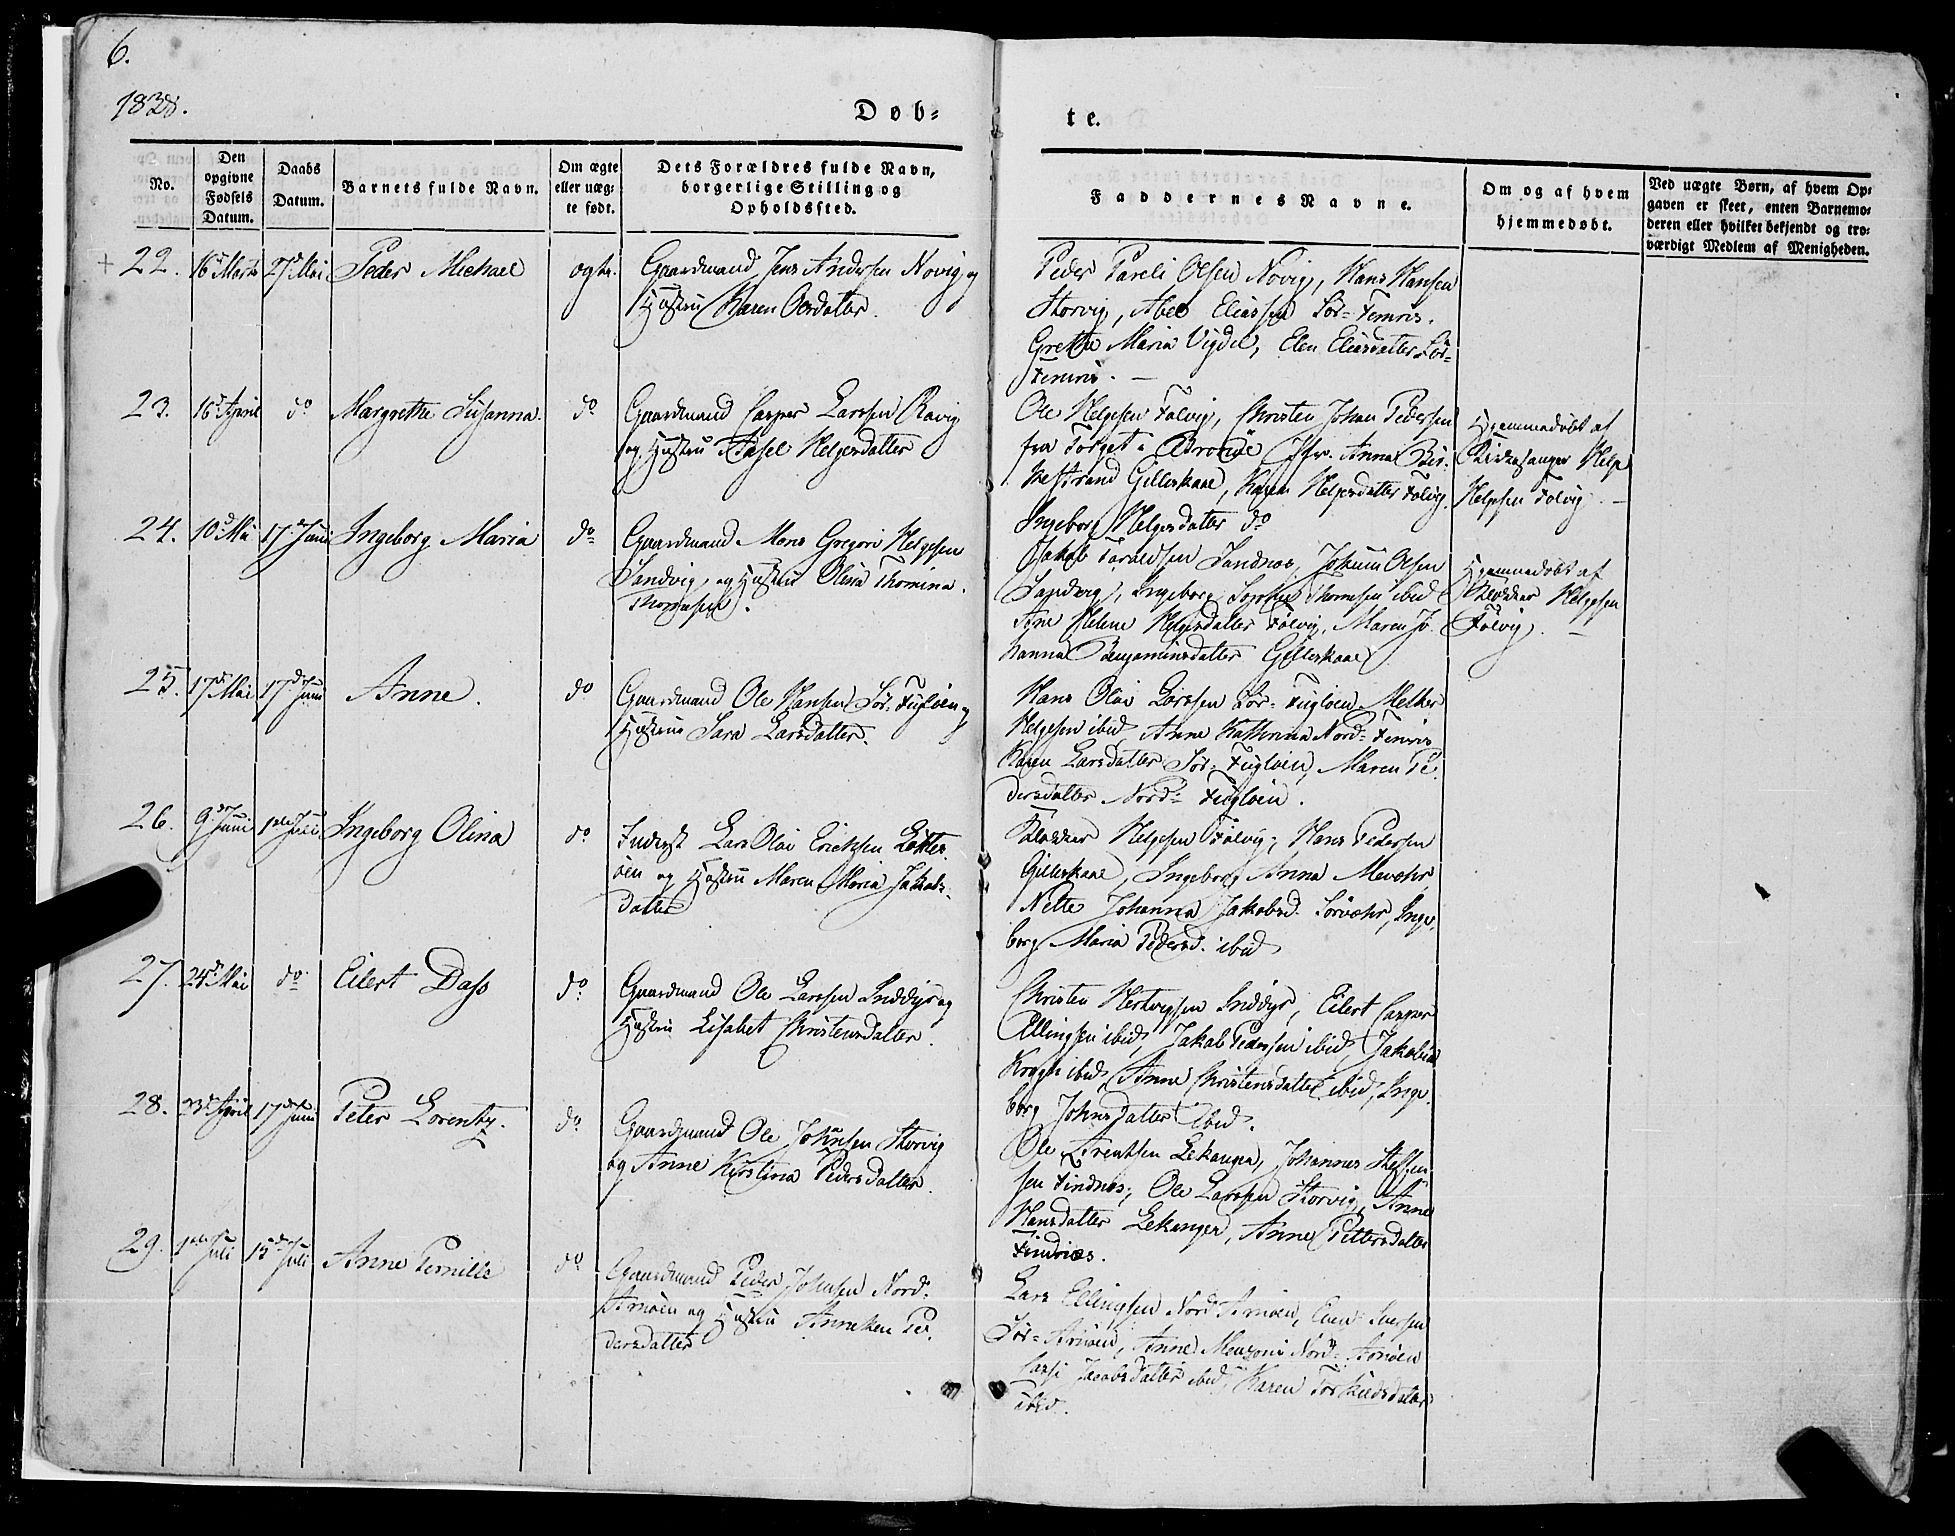 6.
1838.
Døb=
te.
No.
Den opgivne Fødsels Datum.
Daabs Datum.
Barnets fulde Navn.
Om ægte eller uæg= te født.
Dets Forældres fulde Navn, borgerlige Stilling og Opholdssted.
Faddernes Navne.
Om og af hvem hjemmedøbt.
Ved uægte Børn, af hvem Op= gaven er skeet, enten Barnemo= deren eller hvilket bekjendt og tro= værdigt Medlem af Menigheden.
+ 22. 16d Marts 27d Mai Peder Michael ægte. Gaardmand Jens Andersen Novig og
Hustru Karen Olsdatter.
Peder Pareli Olsen Novig, Hans Hansen
Storvig, Abel Eliassen Sør=Femris.
Grethe Maria Vigdel, Elen Eliasdatter Sør=
Femris. —
23. 16d April do Margrethe Susanna. do Gaardmand Casper Larssen Ravig
og Hustru Assel Helgesdatter
Ole Helgesen Følvig, Christen Johan Pedersen
fra Torget i Brønøe Jfr. Anna Bir=
kestrand Gilleskaal, Karen Helgesdatter Følvig.
Ingeborg Helgesdatter do
Hjemmedøbt af
Kirkesanger Helge
Helgesen Følvig. —
24. 10d Mai 17d Juni Ingeborg Maria do Gaardmand Mons Gregori Helgesen
Sandvig, og Hustru Olina Thomina
Thomesen.
Jakob Taraldsen Sandnes, Jokum Olsen
Sandvig, Ingeborg Sophie Thomesen ibid
Ane Helene Helgesdatter Følvig, Maren Jo=
hanna Benjaminsdatter Gilleskaal
Hjemmedøbt af
Klokker Helgesen
Følvig. —
25. 17d Mai 17d Juni Anne. do Gaardmand Ole Hansen Sør=Fugløen og
Hustru Sara Larsdatter.
Hans Olai Larssen Sør=Fugløen, Melker
Helgesen ibid, Anne Kathrina Nord=Femris
Karen Larsdatter Sør=Fugløen, Maren Pe=
dersdatter Nord=Fugløen.
26. 9d Juni 1ste Juli Ingeborg Olina do Inderst Lars Olai Ericksen
øen og Hustru Maren Maria Jakobs=
datter
Klokker Helgesen Følvig, Hans Pedersen
Gilleskaal, Ingeborg Anna Mevær,
Nette Johanna Jakobsd. Sørvær, Inge=
borg Maria Pedersd. ibid
27. 24d Mai do Eilert Dass do Gaardmand Ole Larssen Inddyr og
Hustru Lisabet Christensdatter.
Christen Hertvigsen Inddyr, Eilert Casper
Ellingsen ibid, Jakob Pedersen ibid, Jakobia
Krogh ibid, Anne Christensdatter ibid, Inge=
borg Johnsdatter ibid.
28. 23d April 17d Juni Peter Lorentz. do Gaardmand Ole Johnsen Storvig
og Anne Kirstina Pedersdatter.
Ole Arentsen Lekanger, Johannes Steffen=
sen Findnes, Ole Larssen Storvig, Anne
Hansdatter Lekanger, Anne Pettersdatter
Findnes.
29. 1ste Juli 15d Juli Anne Pernille do Gaardmand Peder Johnsen Nord=
Arnøen og Hustru Anneken Pe=
dersdatter
Lars Ellingsen Nord Arnøen, Even Iversen
Sør=Arnøen, Anne Monsoni Nord=Arnøen
Jacobsdatter ibid, Karen Torkildsdatter
ibid.